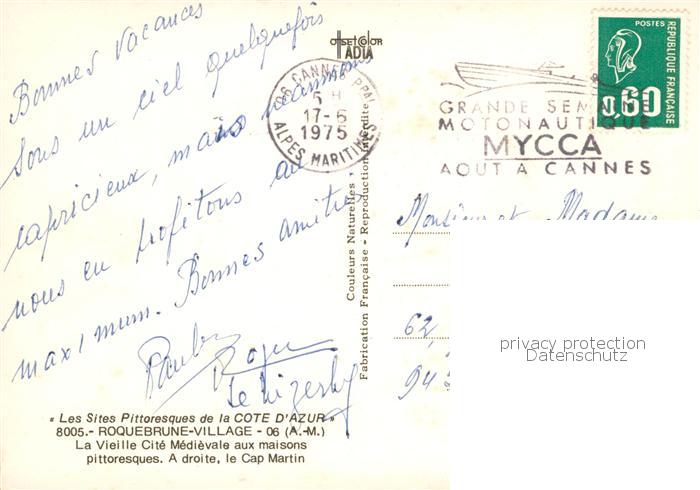 Bonnes vacances
sous un ciel quelquefois
capricieux, mais néanmoins
nous en profitons au
maximum. Bonnes amitiés
Roger
OFFSET COLOR
ADIA
06 CANNES PPAL
5 H
17-6
1975
ALPES MARITIMES
POSTES
REPUBLIQUE FRANÇAISE
0,60
GRANDE SEMAINE
MOTONAUTIQUE
MYCCA
AOUT A CANNES
Couleurs Naturelles
Fabrication Française - Reproduction Interdite
Monsieur et Madame
62,
94
privacy protection
Datenschutz
« Les Sites Pittoresques de la COTE D'AZUR »
8005.- ROQUEBRUNE-VILLAGE - 06 (A.-M.)
La Vieille Cité Médièvale aux maisons
pittoresques. A droite, le Cap Martin